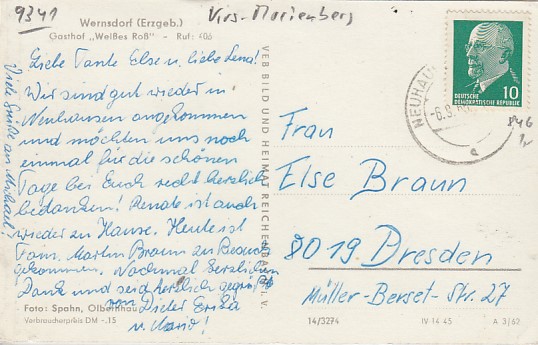 9341
Krs. Marienberg
Wernsdorf (Erzgeb.)
Gasthof „Weißes Roß" - Ruf: 406
Liebe Tante Else u. liebe Lena!
Wir sind gut wieder in
Neuhausen angekommen
und möchten uns noch
einmal für die schönen
Tage bei Euch recht herzlich
bedanken! Renate ist auch
wieder zu Hause. Heute ist
Fam. Martin Braun zu Besuch
gekommen. Nochmal herzlichen
Dank und seid herzlich gegrüßt
von Dieter Erika
Viele Grüße an Michael!
Foto: Spahn, Olbernhau
Verbraucherpreis DM -,15
VEB BILD UND HEIMAT REICHENBACH i. V.
DEUTSCHE
DEMOKRATISCHE REPUBLIK
10
NEUHAU
-6.9.
Frau
Else Braun
8019 Dresden
Müller-Berset-Str. 27
14/3274
IV-14-45
A 3/62